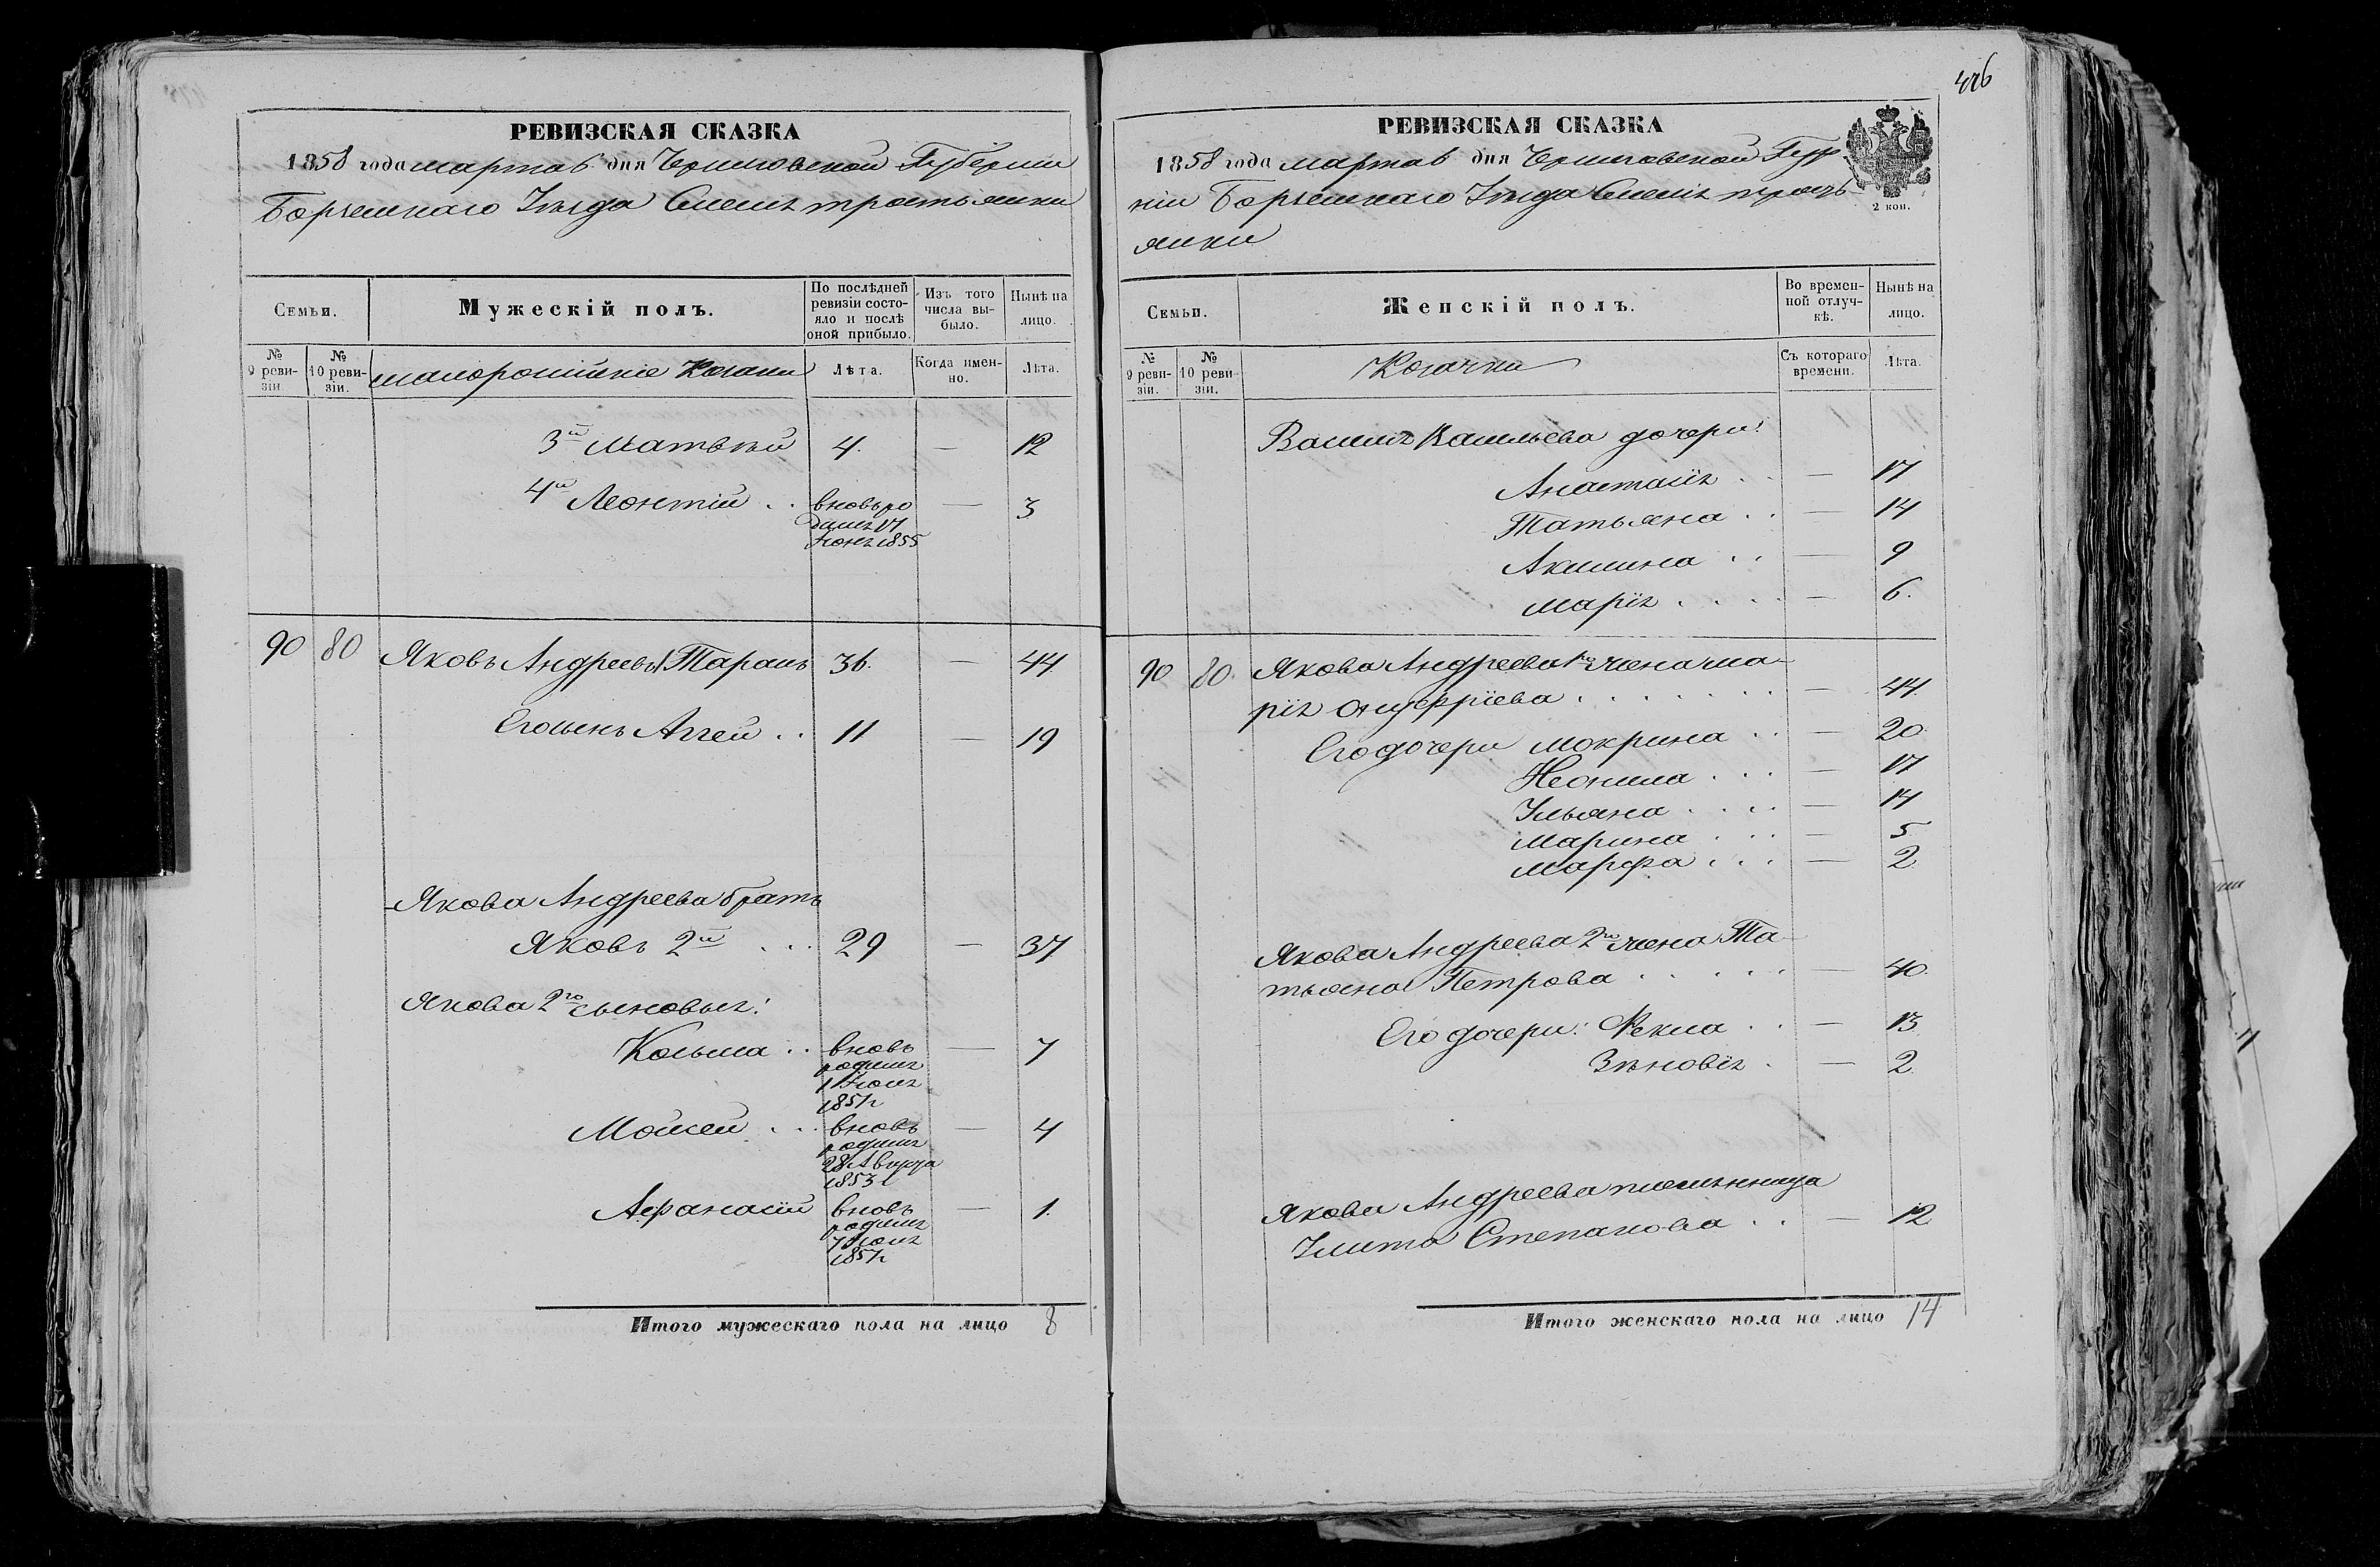 РЕВИЗСКАЯ СКАЗКА
1858 года марта 6 дня Черниговской Губернии
Борзенскаго Уѣзда Села Тростянки
Семьи.
Мужескій полъ.
По послѣдней ревизіи состояло и послѣ оной прибыло.
Изъ того числа выбыло.
Нынѣ на лицо.
№ 9 ревизіи.
№ 10 ревизіи.
малороссійскіе Козаки
Лѣта.
Когда именно.
Лѣта.
3й Матвѣй 4. — 12
4й Леонтій .. вновь ро — 3
дился 17
1855
90 80 Яковъ Андреевъ Тарань 36. — 44.
Его сынъ Аггей .. 11 — 19
Якова Андреева братъ
Яковъ 2й ... 29 — 37
Якова 2го сыновья:
Козьма .. вновь — 7
родился
1 Іюля
1851 г
Мойсей ... вновь — 4
родился
28 Августа
1853 г
Афанасій вновь — 1.
родился
7 Іюля
1857 г
Итого мужескаго пола на лицо 8
476
РЕВИЗСКАЯ СКАЗКА
1858 года марта 6 дня Черниговской Губер
ніи Борзенскаго Уѣзда Села Трость
янки
2 коп.
Семьи.
Женскій полъ.
Во временной отлучкѣ.
Нынѣ на лицо.
№ 9 ревизіи.
№ 10 ревизіи.
Козачки
Съ котораго времени.
Лѣта.
Васильева дочери:
Анастасія .. — 17
Татьяна .. — 14
Акилина .. — 9
Марія .... — 6.
90 80. Якова Андреева 1го жена Ма-
рія .... — 44.
Его дочери Мокрина .. — 20.
Неонила ... — 17
Ульяна .... — 14
Марина ... — 5
Марфа ... — 2.
Якова Андреева 2го жена Та-
тьяна Петрова ..... — 40.
Его дочери: Фекла .. — 13.
Зѣновія . — 2.
Якова Андреева племянница
Улита Степанова .. — 12
Итого женскаго пола на лицо 14